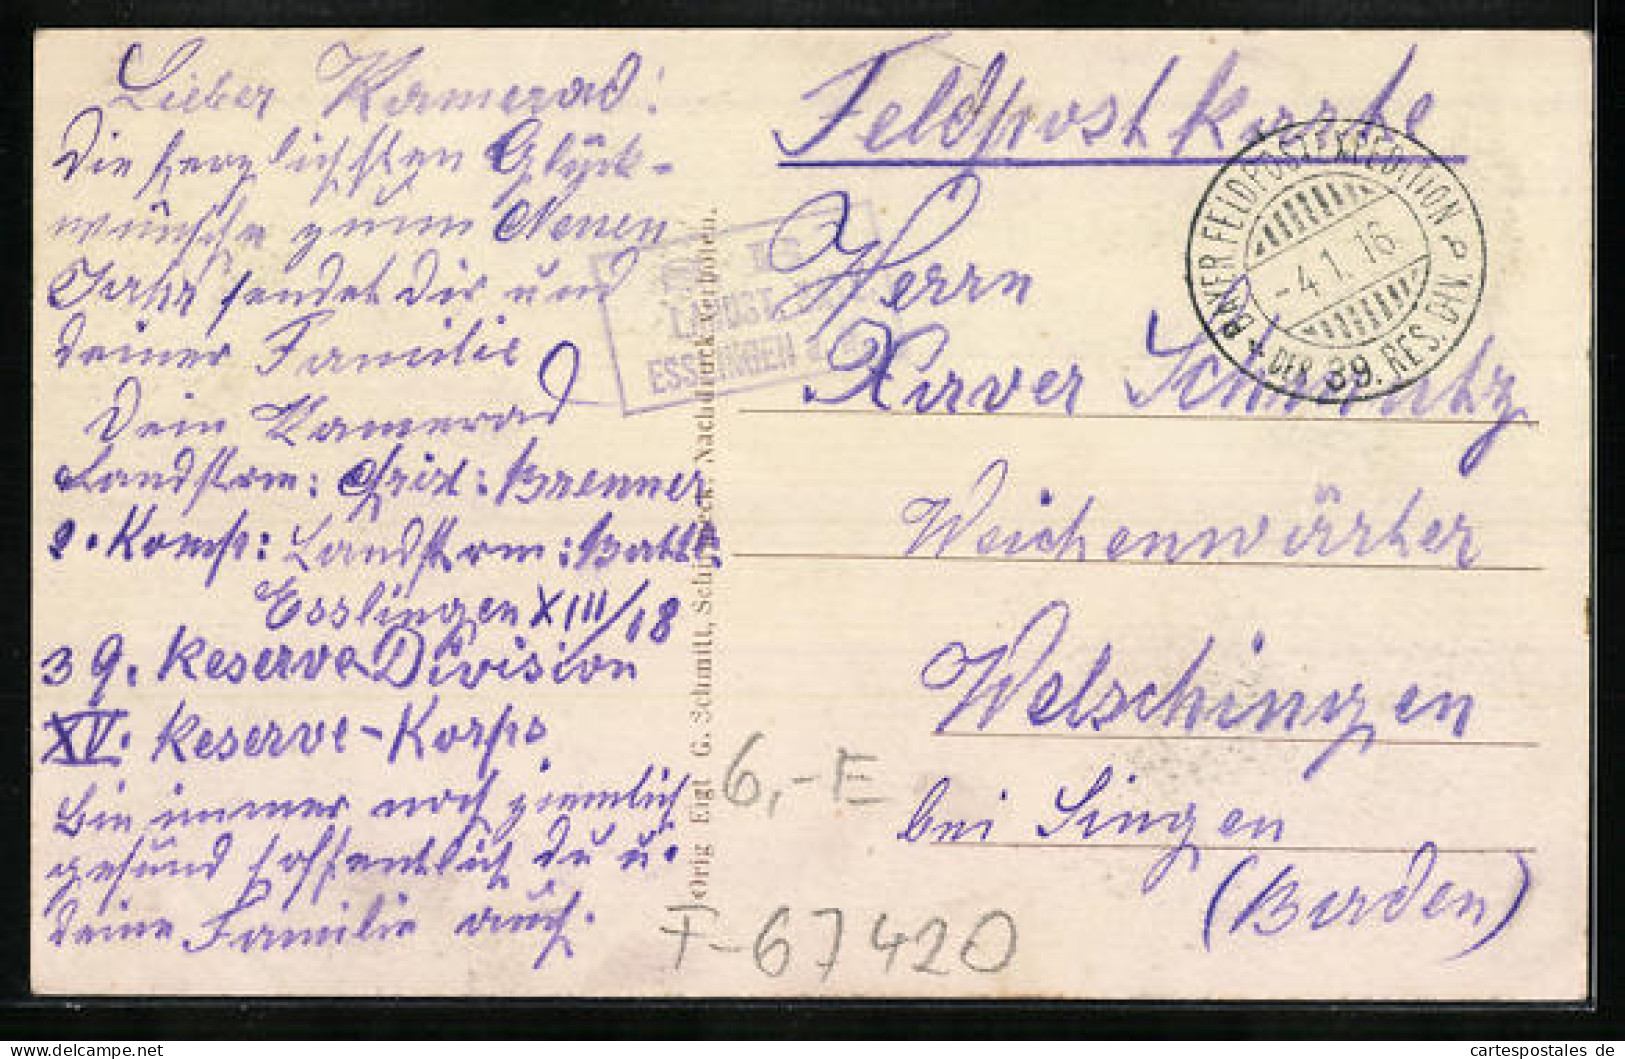 Lieber Kamerad!
Die herzlichsten Glück-
wünsche zum Neuen
Jahr sendet dir und
deiner Familie
Dein Kamerad
Landstrm: Frid: Brenner
2. Komp: Landstrm: Batl:
Esslingen XIII/18
39. Reserve Division
XV. Reserve-Korps.
Bin immer noch ziemlich
gesund hoffentlich du u.
deine Familie auch.
Orig Eigt G. Schmitt, Schirmeck. Nachdruck verboten.
LANDST.
ESSLINGEN
Feldpostkarte
BAYER. FELDPOSTEXPEDITION
-4.1.16.
DER 39. RES. DIV.
Herrn
Xaver
Weichenwärther
Welschingen
bei Singen
(Baden)
6,- E
F-67420
cartespostales de